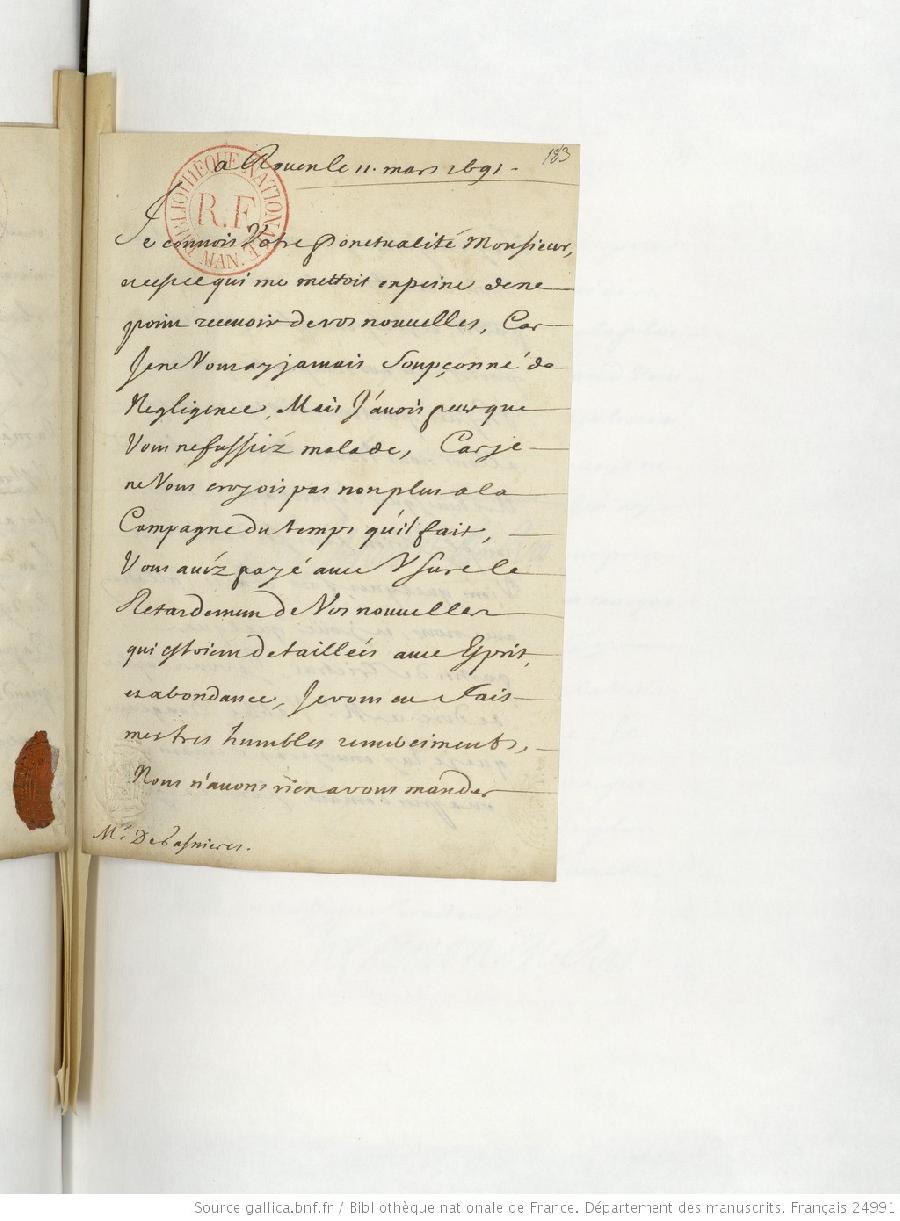 183
a Rouen le 11. mars 1691.
BIBLIOTHEQUE NATIONALE
R.F.
MAN.
Je connois Votre ponctualité Monsieur,
et c'est ce qui me mettoit en peine de ne
point recevoir de vos nouvelles, Car
Je ne Vous ay jamais Soupçonné de
Negligence, Mais J'avois peur que
Vous ne fussiéz malade, Car je
ne Vous croyois pas non plus a la
Campagne du temps qu'il fait,
Vous avéz payé avec Usure le
Retardement de Vos nouvelles
qui estoient detaillées avec Esprit,
et abondance, Je vous en Fais
mes tres humbles remerciments,
Nous n'avons rien a vous mander
Mr. De
Source gallica.bnf.fr / Bibliothèque nationale de France. Département des manuscrits. Français 24991